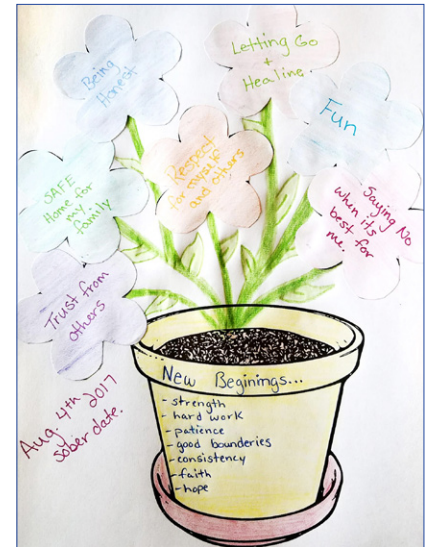 Being
Honest
Letting Go
+
Healine
Fun
SAFE
Home for
my
family
Respect
for myself
and others
Saying No
when its
best for
me.
Trust from
others
Aug. 4th 2017
sober date.
New Beginings...
- strength
- hard work
- patience
- good bounderies
- consistency
- faith
- hope